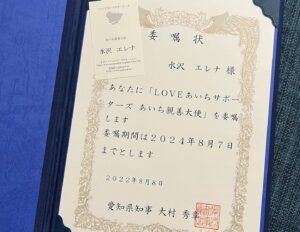 委嘱状
水沢 エレナ 様
あなたに「LOVEあいちサポー
ターズ あいち親善大使」を委嘱
します
委嘱期間は2024年8月7日
までとします
2022年8月8日
愛知県知事 大村 秀章
水沢 エレナ